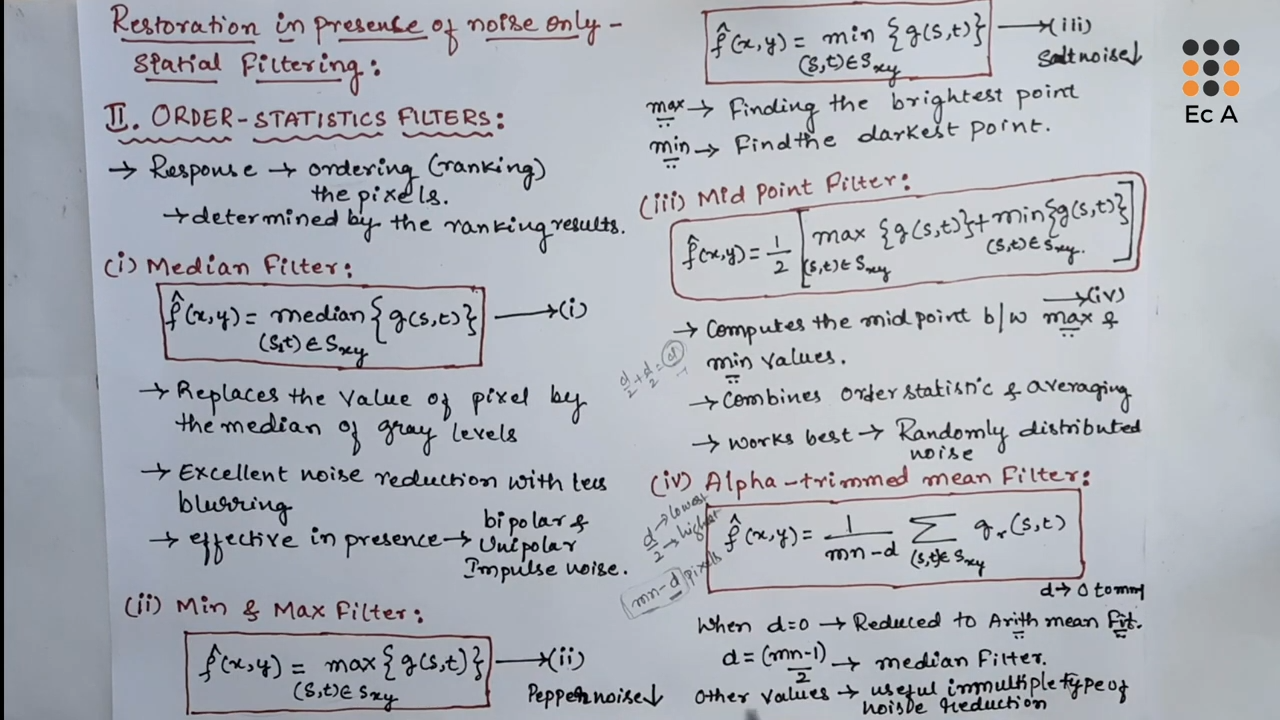 Restoration in presence of noise only -
Spatial Filtering:
II. ORDER-STATISTICS FILTERS:
→ Response → ordering (ranking)
the pixels.
→ determined by the ranking results.
(i) Median Filter:
f̂(x,y) = median {g(s,t)} ⟶(i)
(s,t)∈Sxy
→ Replaces the value of pixel by
the median of gray levels
→ Excellent noise reduction with less
blurring
→ effective in presence → bipolar &
Unipolar
Impulse noise.
(ii) Min & Max Filter:
f̂(x,y) = max {g(s,t)} ⟶(ii)
(s,t)∈Sxy
Pepper noise↓
f̂(x,y) = min {g(s,t)} ⟶(iii)
(s,t)∈Sxy
Salt noise↓
max → Finding the brightest point
min → Find the darkest point.
(iii) Mid Point Filter:
f̂(x,y) = 1/2 [max {g(s,t)} + min {g(s,t)}]
(s,t)∈Sxy (s,t)∈Sxy.
⟶(iv)
→ Computes the mid point b/w max &
min values.
d/2 + d/2 = d
→ Combines order statistic & averaging
→ works best → Randomly distributed
noise
(iv) Alpha-trimmed mean Filter:
d/2 → lowest
→ highest
mn-d pixels
f̂(x,y) = 1/(mn-d) Σ gr(s,t)
(s,t)∈Sxy
d → 0 to mn
When d=0 → Reduced to Arith mean Fit.
d = (mn-1)/2 → median Filter.
Other values → useful in multiple type of
noise reduction
Ec A